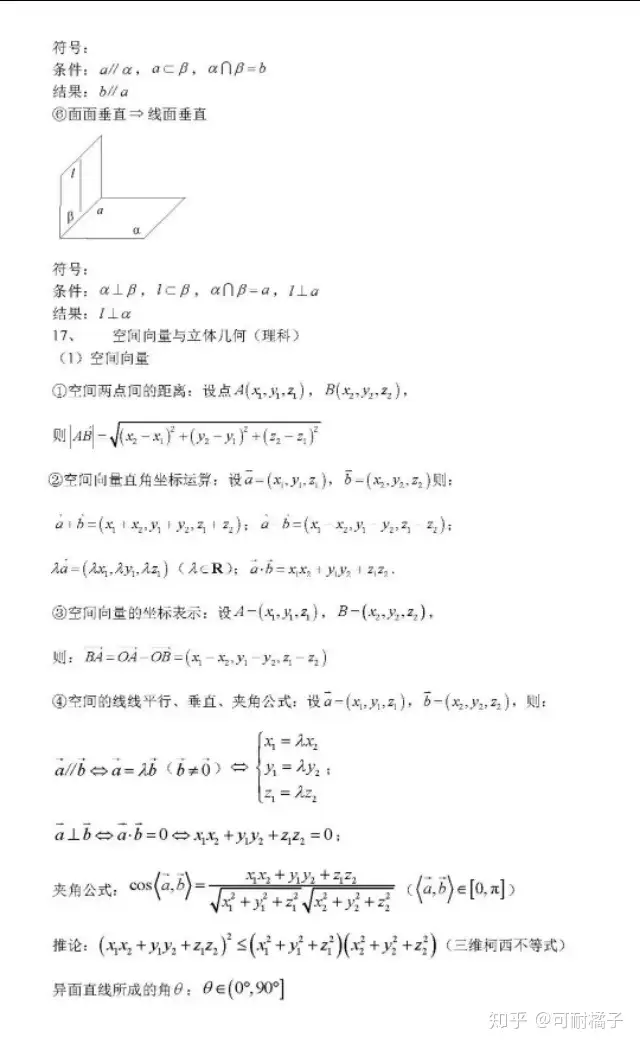 符号：
条件：a// α，a⊂β，α⋂β=b
结果：b// a
⑥面面垂直⇒线面垂直
l
β
a
α
符号：
条件：α⊥β，l⊂β，α⋂β=a，l⊥a
结果：l⊥α
17、 空间向量与立体几何（理科）
（1）空间向量
①空间两点间的距离：设点A(x₁,y₁,z₁)，B(x₂,y₂,z₂)，
则|AB|=√((x₂−x₁)²+(y₂−y₁)²+(z₂−z₁)²)
②空间向量直角坐标运算：设a⃗=(x₁,y₁,z₁)，b⃗=(x₂,y₂,z₂)则：
a⃗+b⃗=(x₁+x₂,y₁+y₂,z₁+z₂)；a⃗−b⃗=(x₁−x₂,y₁−y₂,z₁−z₂)；
λa⃗=(λx₁,λy₁,λz₁)（λ∈R）；a⃗·b⃗=x₁x₂+y₁y₂+z₁z₂.
③空间向量的坐标表示：设A=(x₁,y₁,z₁)，B=(x₂,y₂,z₂)，
则：BA⃗=OA⃗−OB⃗=(x₁−x₂,y₁−y₂,z₁−z₂)
④空间的线线平行、垂直、夹角公式：设a⃗=(x₁,y₁,z₁)，b⃗=(x₂,y₂,z₂)，则：
a⃗//b⃗⇔a⃗=λb⃗（b⃗≠0⃗）⇔{x₁=λx₂
y₁=λy₂；
z₁=λz₂
a⃗⊥b⃗⇔a⃗·b⃗=0⇔x₁x₂+y₁y₂+z₁z₂=0；
夹角公式：cos⟨a⃗,b⃗⟩=(x₁x₂+y₁y₂+z₁z₂)/(√(x₁²+y₁²+z₁²)√(x₂²+y₂²+z₂²))（⟨a⃗,b⃗⟩∈[0,π]）
推论：(x₁x₂+y₁y₂+z₁z₂)²≤(x₁²+y₁²+z₁²)(x₂²+y₂²+z₂²)（三维柯西不等式）
异面直线所成的角θ：θ∈(0°,90°]
知乎 @可耐橘子